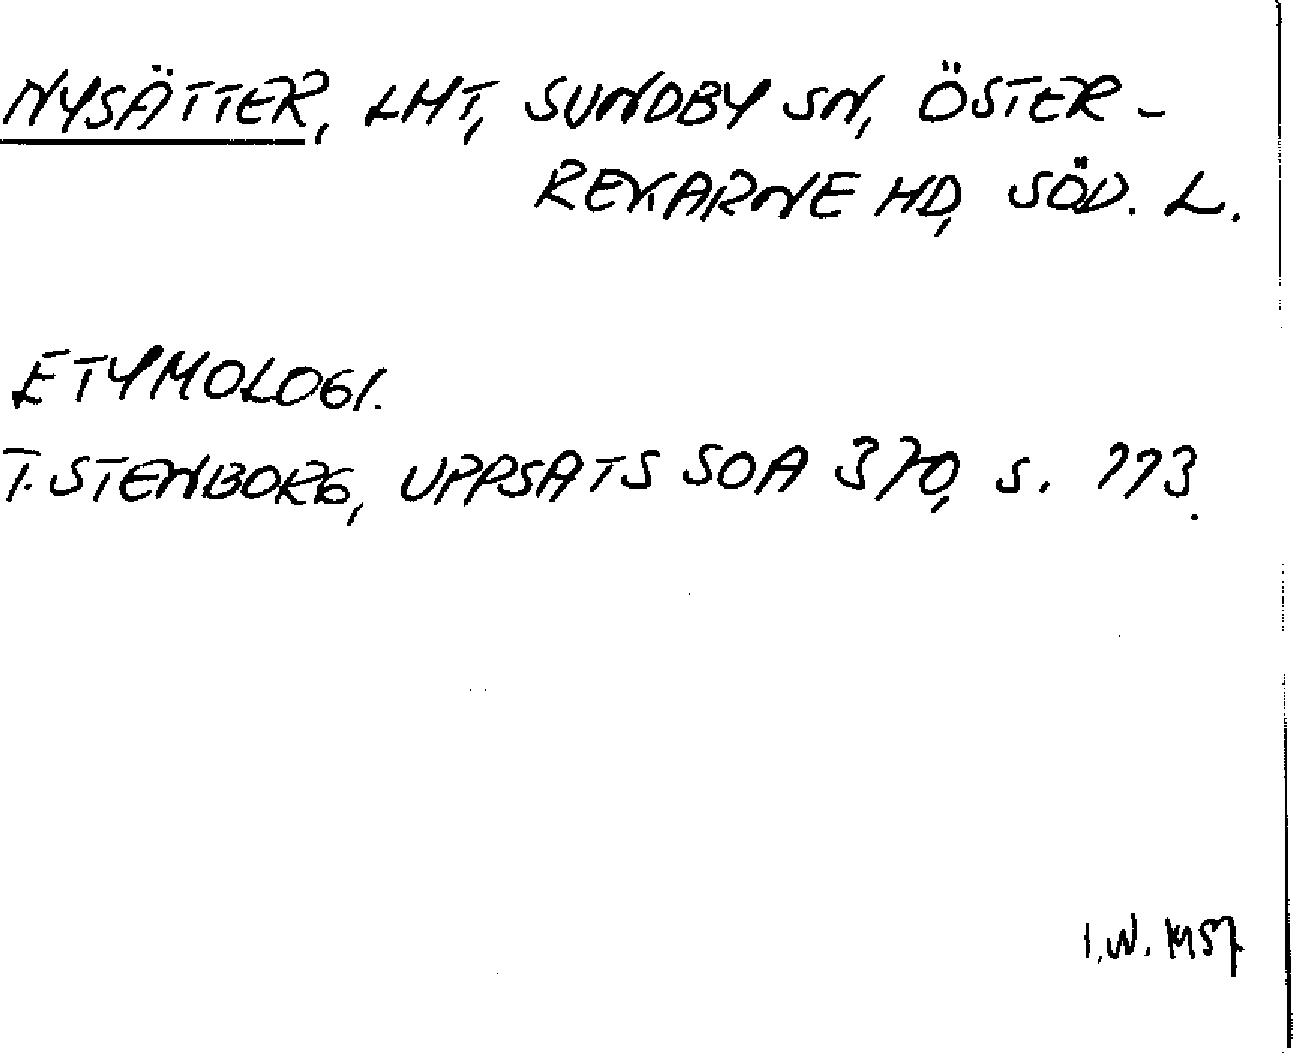 NYSÄTTER, LHT, SUNDBY SN, ÖSTER-
REKARNE HD, SÖD. L.
ETYMOLOGI.
T. STENBORG, UPPSATS SOA 370, S. 113.
I.W. 1957